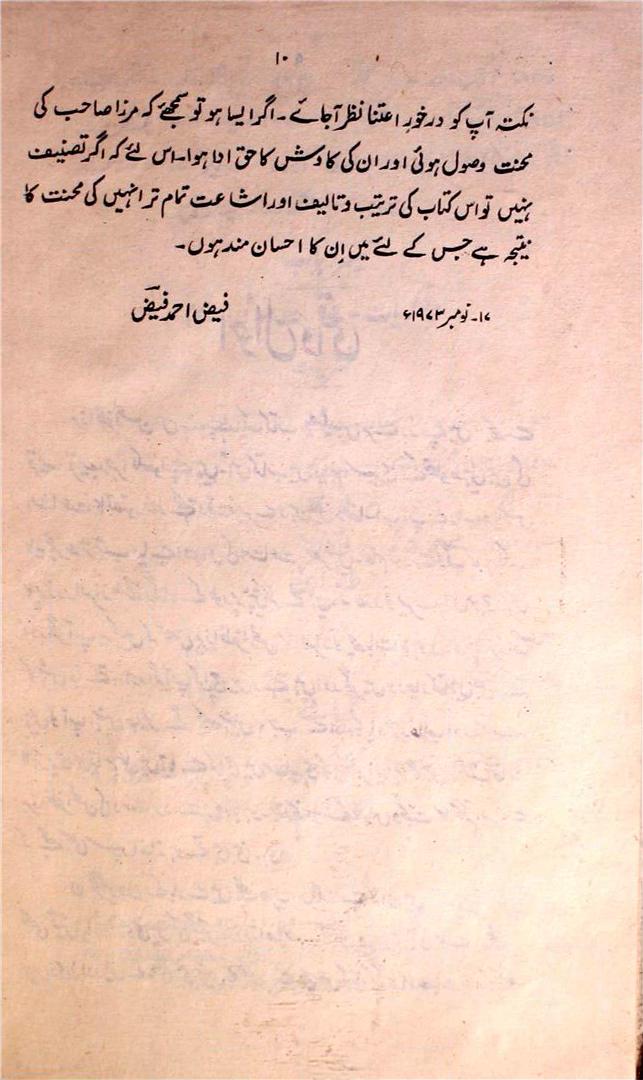 ۱۰
نکتہ آپ کو درخورِ اعتنا نظر آجائے۔ اگر ایسا ہو تو سمجھئے کہ مرزا صاحب کی
محنت وصول ہوئی اور ان کی کاوش کا حق ادا ہوا۔ اس لئے کہ اگر تصنیف
نہیں تو اس کتاب کی ترتیب و تالیف اور اشاعت تمام تر انہیں کی محنت کا
نتیجہ ہے جس کے لئے میں اِن کا احسان مند ہوں۔
۱۷۔ نومبر ۱۹۷۳ء فیض احمد فیضؔ